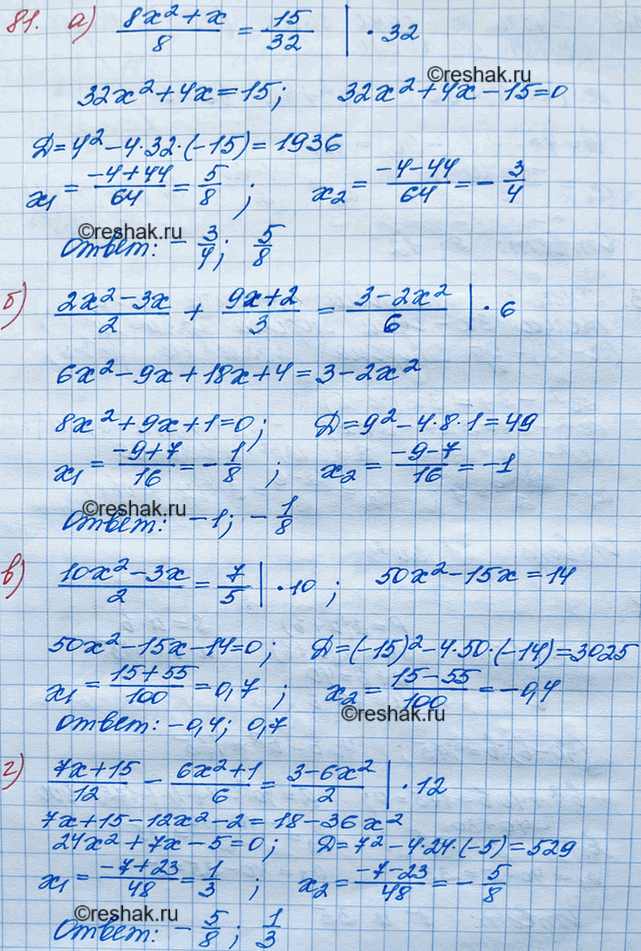 81. а) (8x² + x)/8 = 15/32 | · 32
©reshak.ru
32x² + 4x = 15; 32x² + 4x − 15 = 0
Д = 4² − 4·32·(−15) = 1936
x₁ = (−4+44)/64 = 5/8 ; x₂ = (−4−44)/64 = −3/4
©reshak.ru
Ответ: −3/4; 5/8
б) (2x² − 3x)/2 + (9x+2)/3 = (3−2x²)/6 | · 6
6x² − 9x + 18x + 4 = 3 − 2x²
8x² + 9x + 1 = 0; Д = 9² − 4·8·1 = 49
x₁ = (−9+7)/16 = −1/8 ; x₂ = (−9−7)/16 = −1
©reshak.ru
Ответ: −1; −1/8
в) (10x² − 3x)/2 = 7/5 | · 10 ; 50x² − 15x = 14
50x² − 15x − 14 = 0; Д = (−15)² − 4·50·(−14) = 3025
x₁ = (15+55)/100 = 0,7 ; x₂ = (15−55)/100 = −0,4
©reshak.ru
Ответ: −0,4; 0,7
г) (7x+15)/12 − (6x²+1)/6 = (3−6x²)/2 | · 12
7x + 15 − 12x² − 2 = 18 − 36x²
24x² + 7x − 5 = 0; Д = 7² − 4·24·(−5) = 529
x₁ = (−7+23)/48 = 1/3 ; x₂ = (−7−23)/48 = −5/8
©reshak.ru
Ответ: −5/8; 1/3